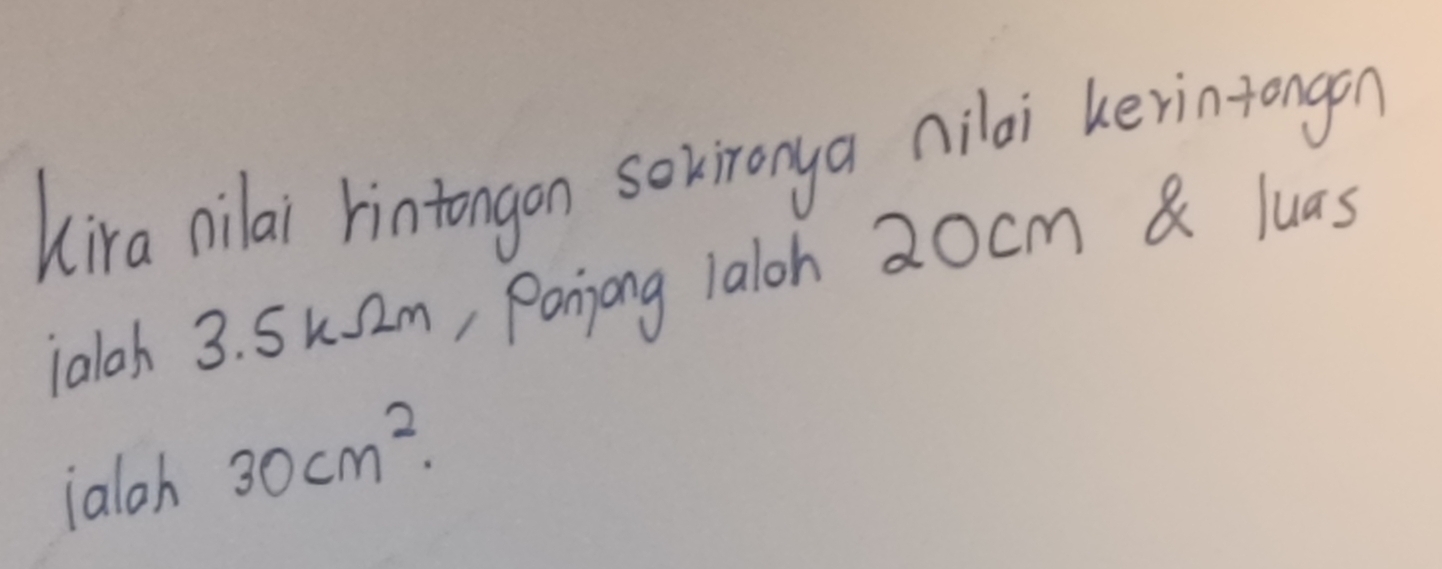 Kira nilai rintangan sekiranya nilai kerintangan
ialah 3.5kΩm, Panjang ialah 20cm & luas
ialah 30cm².